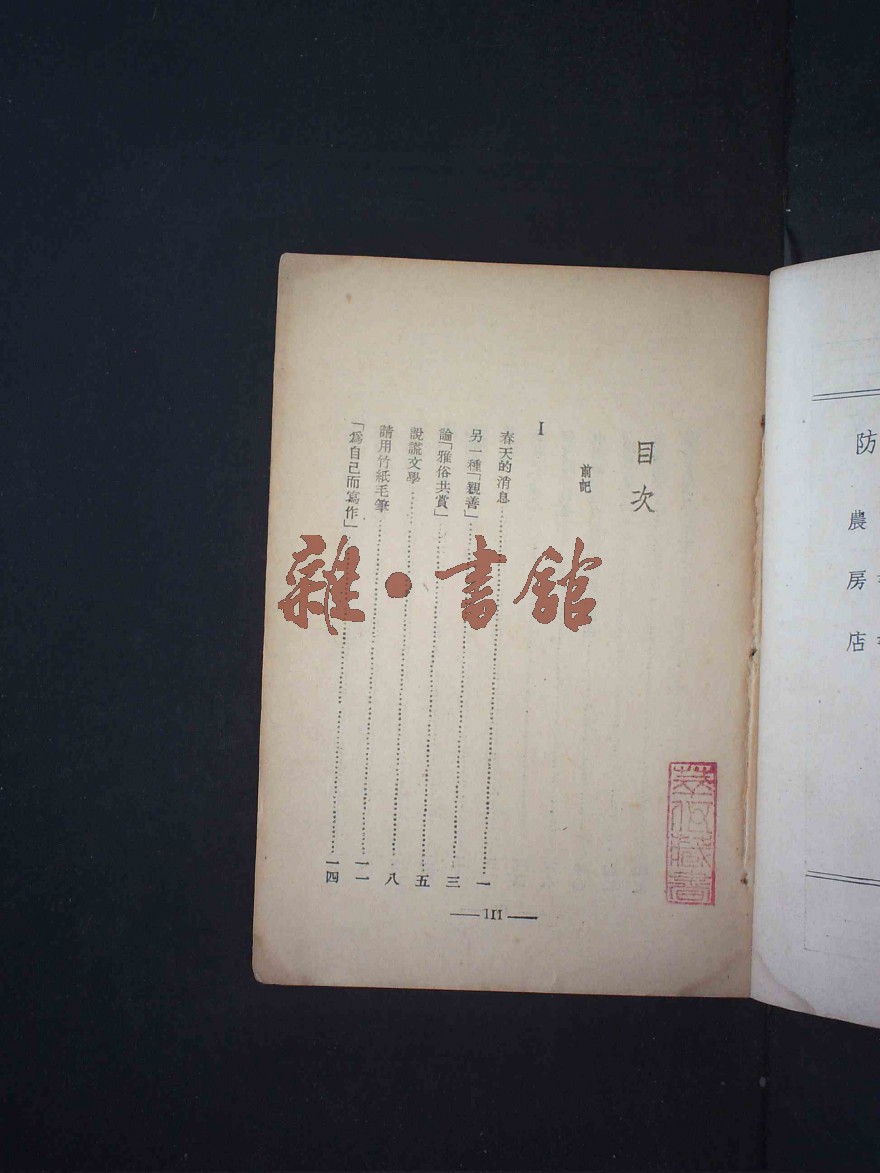 防
農
房
店
目次
前記
I
春天的消息⋯⋯一
另一種「觀善」⋯⋯三
論「雅俗共賞」⋯⋯五
說謊文學⋯⋯八
請用竹紙毛筆⋯⋯一一
「爲自己而寫作」⋯⋯一四
III
雜•書館
藏書